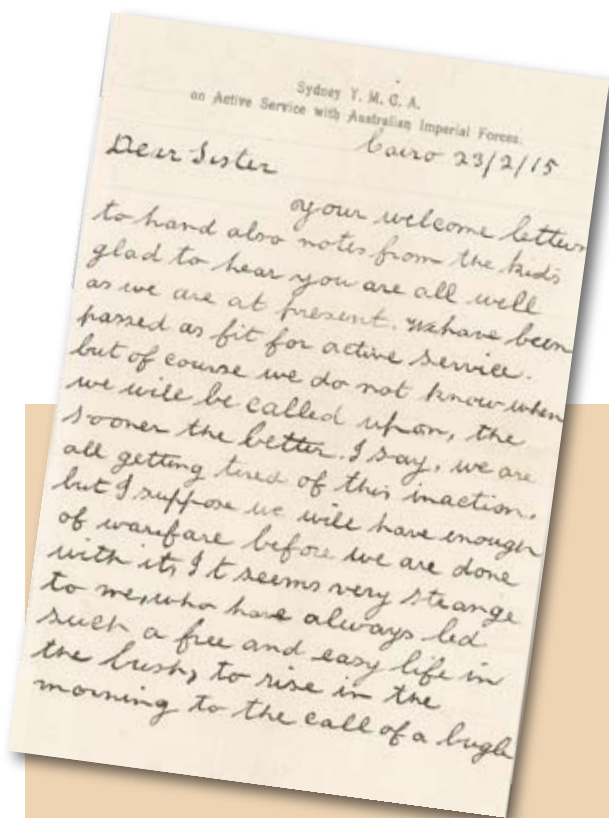 Sydney Y. M. C. A.
on Active Service with Australian Imperial Forces.
Cairo 23/2/15
Dear Sister
your welcome letters
to hand also notes from the kids
glad to hear you are all well
as we are at present. We have been
passed as fit for active service.
but of course we do not know when
we will be called upon, the
sooner the better. I say, we are
all getting tired of this inaction.
but I suppose we will have enough
of warefare before we are done
with it, It seems very strange
to me, who have always led
such a free and easy life in
the bush, to rise in the
morning to the call of a bugle